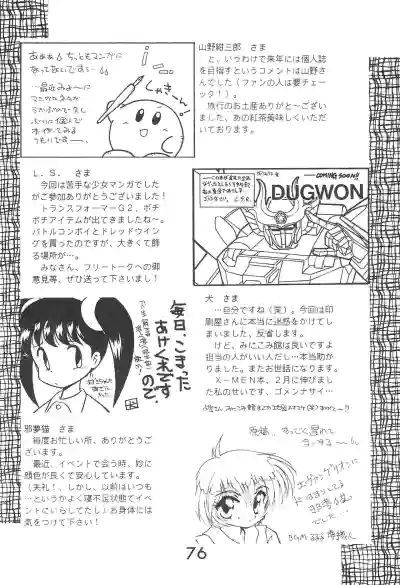 あぁぁぁ ちっともマンガに
しゃきーん!
山野紺三郎 さま
と、いうわけで来年には個人誌
を目指すというコメントは山野さ
んでした（ファンの人は要チェッ
ーク！）。
旅行のお土産ありがと～ござい
ました、あの紅茶美味しくいただ
いております。
L．S． さま
今回は苦手な少女マンガでした
がご参加ありがとうございました！
トランスフォーマーG2、ボチ
ボチアイテムが出てきましたね～。
バトルコンボイとドレッドウイン
グを買ったのですが、大きくて飾
る場所が…。
みなさん、フリートークへの御
意見等、ぜひ送って下さいまし！
COMING SOON!!
DUGWON
犬 さま
…自分ですね（笑）。今回は印
刷屋さんに本当に迷惑をかけてし
まいました、反省します。
けど、みにこみ館は良いですよ
担当の人がいい人だし…本当助か
りました。またお世話になります。
X－MEN本、2月に伸びまし
た私のせいです、ゴメンナサイ…
毎日、こまった
あけくれです
ので。
邪夢猫 さま
毎度お忙しい所、ありがとうご
ざいます。
最近、イベントで会う時、妙に
顔色が良くて安心しています。
（失礼！、しかし、以前はいつも
…というかよく寝不足状態でイベ
ントにいらしてたし）お身体には
気をつけて下さい！
原稿…すっごく遅れて
76